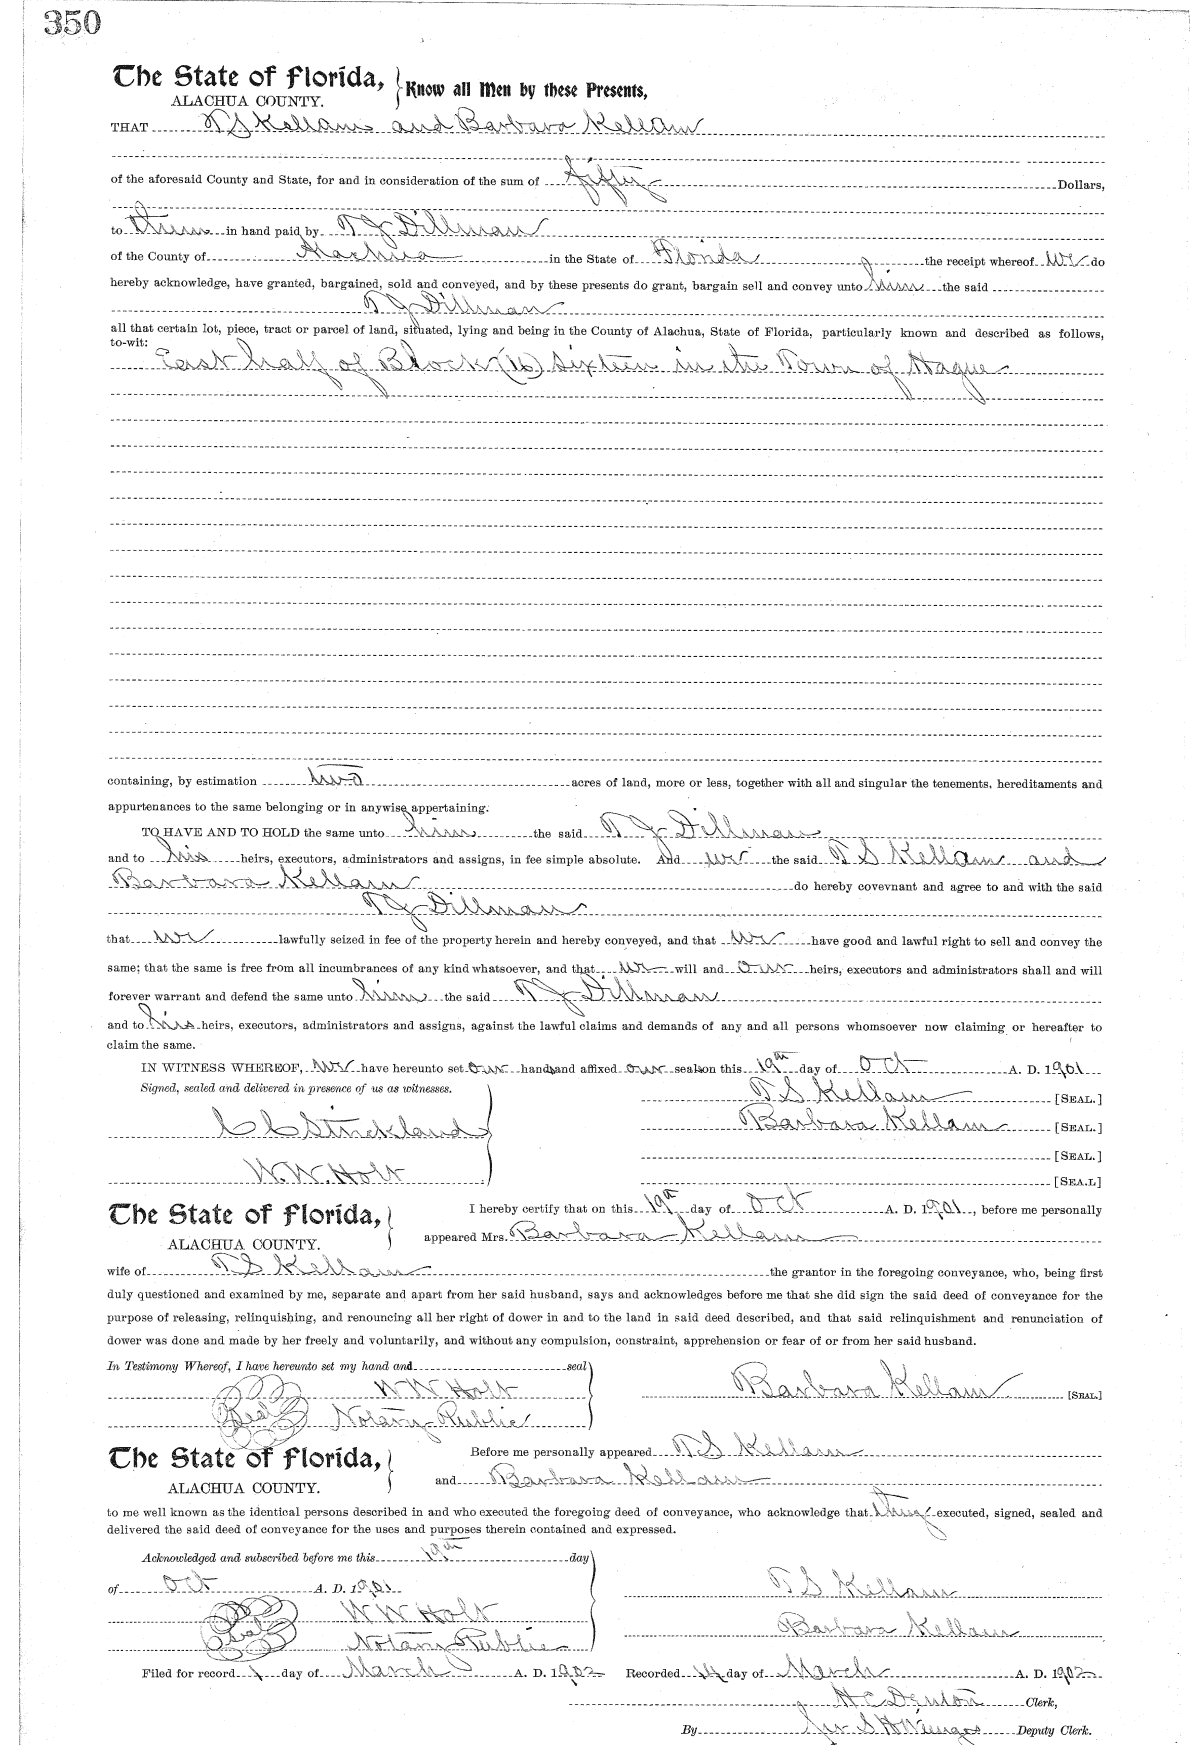 350
The State of Florida, Know all Men by these Presents,
ALACHUA COUNTY.
THAT T S Kellam and Barbara Kellam
of the aforesaid County and State, for and in consideration of the sum of fifty Dollars,
to them in hand paid by T J Dillman
of the County of Alachua in the State of Florida the receipt whereof we do
hereby acknowledge, have granted, bargained, sold and conveyed, and by these presents do grant, bargain sell and convey unto him the said
T J Dillman
all that certain lot, piece, tract or parcel of land, situated, lying and being in the County of Alachua, State of Florida, particularly known and described as follows,
to-wit:
East half of Block (16) Sixteen in the Town of Hague
containing, by estimation two acres of land, more or less, together with all and singular the tenements, hereditaments and
appurtenances to the same belonging or in anywise appertaining.
TO HAVE AND TO HOLD the same unto him the said T J Dillman
and to his heirs, executors, administrators and assigns, in fee simple absolute. And we the said T S Kellam and
Barbara Kellam do hereby covevnant and agree to and with the said
T J Dillman
that we lawfully seized in fee of the property herein and hereby conveyed, and that we have good and lawful right to sell and convey the
same; that the same is free from all incumbrances of any kind whatsoever, and that we will and our heirs, executors and administrators shall and will
forever warrant and defend the same unto him the said T J Dillman
and to his heirs, executors, administrators and assigns, against the lawful claims and demands of any and all persons whomsoever now claiming or hereafter to
claim the same.
IN WITNESS WHEREOF, we have hereunto set our hands and affixed our seals on this 19th day of Oct A. D. 1901
Signed, sealed and delivered in presence of us as witnesses. T S Kellam [SEAL.]
C C Strickland Barbara Kellam [SEAL.]
[SEAL.]
W. W. Holt [SEA.L]
The State of Florida, I hereby certify that on this 19th day of Oct A. D. 1901, before me personally
ALACHUA COUNTY. appeared Mrs. Barbara Kellam
wife of T S Kellam the grantor in the foregoing conveyance, who, being first
duly questioned and examined by me, separate and apart from her said husband, says and acknowledges before me that she did sign the said deed of conveyance for the
purpose of releasing, relinquishing, and renouncing all her right of dower in and to the land in said deed described, and that said relinquishment and renunciation of
dower was done and made by her freely and voluntarily, and without any compulsion, constraint, apprehension or fear of or from her said husband.
In Testimony Whereof, I have hereunto set my hand and seal
W W Holt Barbara Kellam [SEAL.]
Seal Notary Public
The State of Florida, Before me personally appeared T S Kellam
ALACHUA COUNTY. and Barbara Kellam
to me well known as the identical persons described in and who executed the foregoing deed of conveyance, who acknowledge that they executed, signed, sealed and
delivered the said deed of conveyance for the uses and purposes therein contained and expressed.
Acknowledged and subscribed before me this 19th day
of Oct A. D. 1901 T S Kellam
Seal W W Holt
Notary Public Barbara Kellam
Filed for record 1 day of March A. D. 1902 Recorded 14 day of March A. D. 1902
H C Denton Clerk,
By S H Wienges Deputy Clerk.